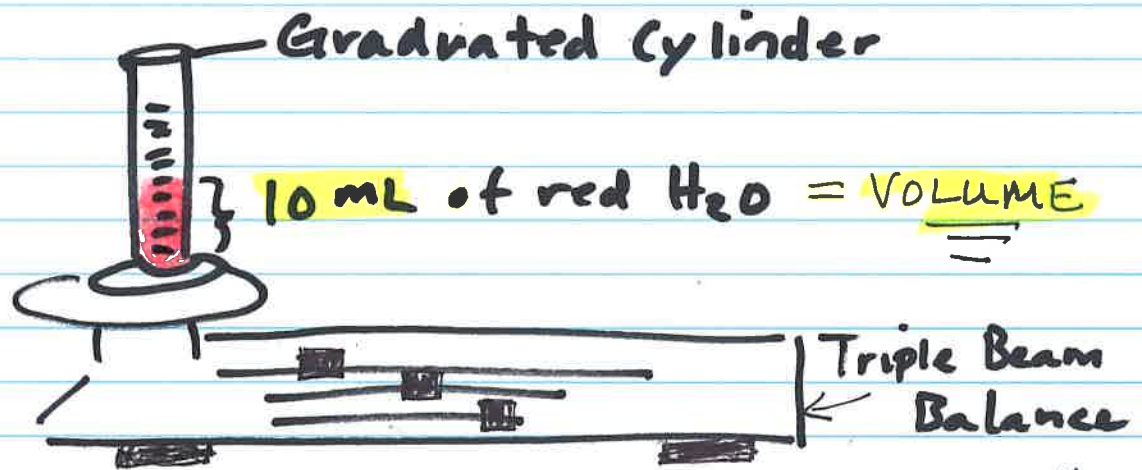 Graduated Cylinder
10 mL of red H₂O = VOLUME
Triple Beam
Balance